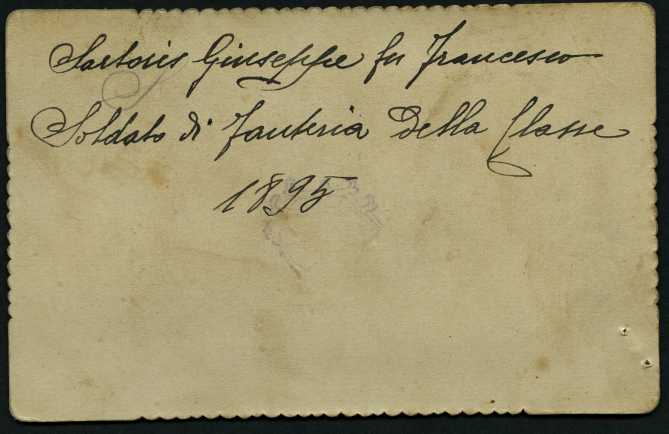 Sartoris Giuseppe fu Francesco
Soldato di Fanteria Della Classe
1895